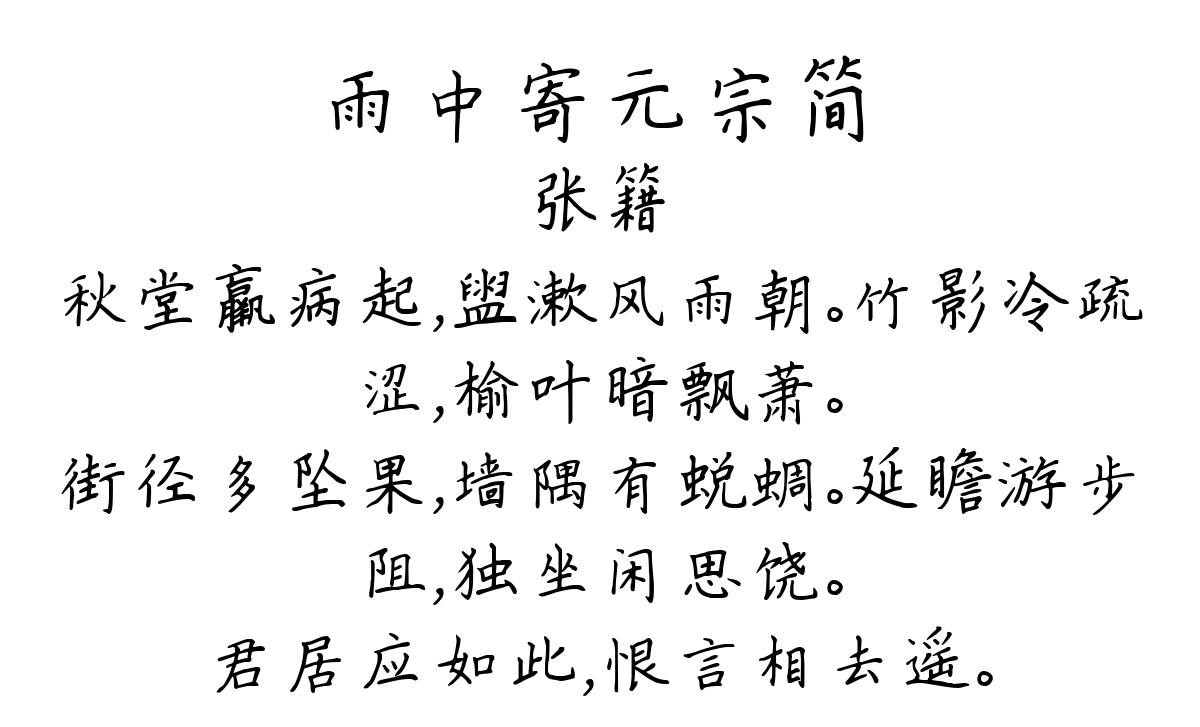 雨中寄元宗简
张籍
秋堂羸病起,盥漱风雨朝。竹影冷疏
涩,榆叶暗飘萧。
街径多坠果,墙隅有蜕蜩。延瞻游步
阻,独坐闲思饶。
君居应如此,恨言相去遥。